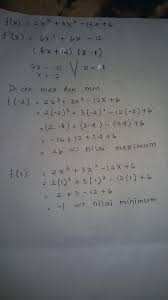 f(x) = 2x³ + 3x² - 12x + 6
f'(x) = 6x² + 6x - 12
(6x + 12) (x - 1)
x = -2 V x = 1
max dan min
f(-2) = 2x³ + 3x² - 12x + 6
= 2(-2)³ + 3(-2)² - 12(-2) + 6
= 2(-8) + (3·4) - (-24) + 6
= -16 + 12 + 24 + 6
= 26 => nilai maximum
f(1) = 2x³ + 3x² - 12x + 6
= 2(1)³ + 3(1)² - 12(1) + 6
= 2 + 3 - 12 + 6
= -1 => nilai minimum